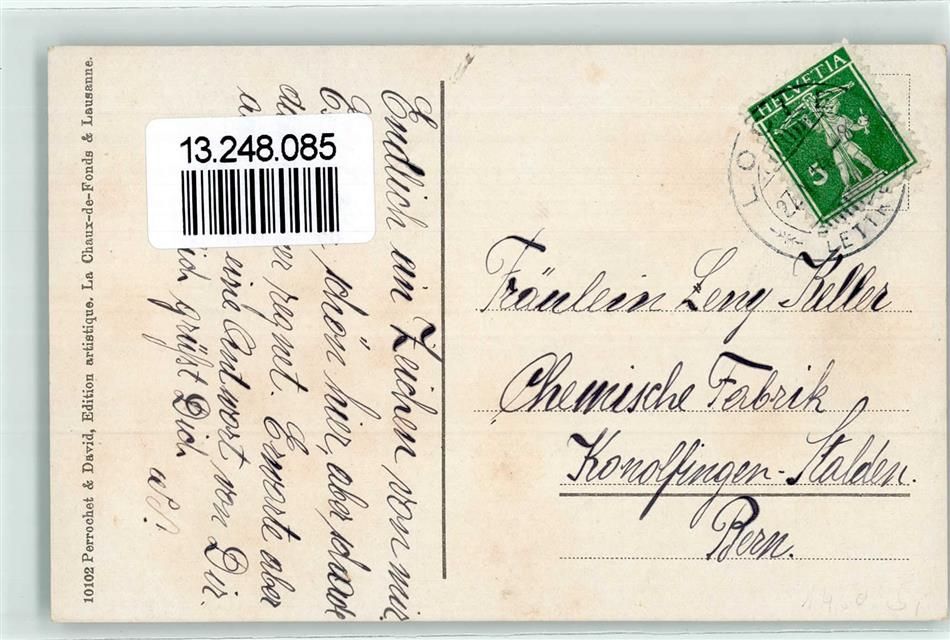 10102 Perrochet & David, Edition artistique. La Chaux-de-Fonds & Lausanne.
13.248.085
Endlich ein Zeichen von mir.
schön hier, aber schade
regnet. Erwarte aber
eine Antwort von Dir.
grüßt Dich
HELVETIA
5
LO
27
LETTR
Fräulein Leny Keller
Chemische Fabrik
Konolfingen-Stalden.
Bern.